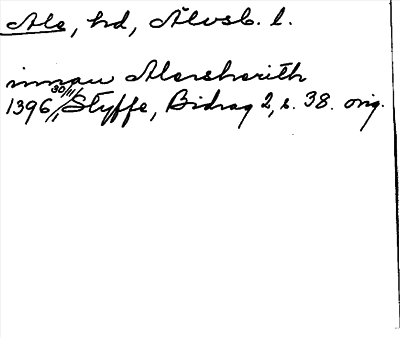 Ale, hd, Älvsb. l.
innan Alershærith
1396 30/11, Styffe, Bidrag 2, s. 38. orig.